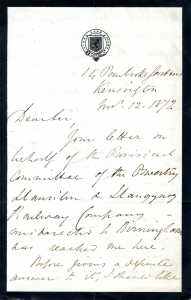 14 Pembroke Gardens
Kensington
Nov. 12. 1872
Dear Sir,
Your letter on
behalf of the Provisional
Committee of the Oswestry
Llansilin & Llangynog
Railway Company –
misdirected to Birmingham
has reached me here.
Before giving a definite
answer to it, I should like